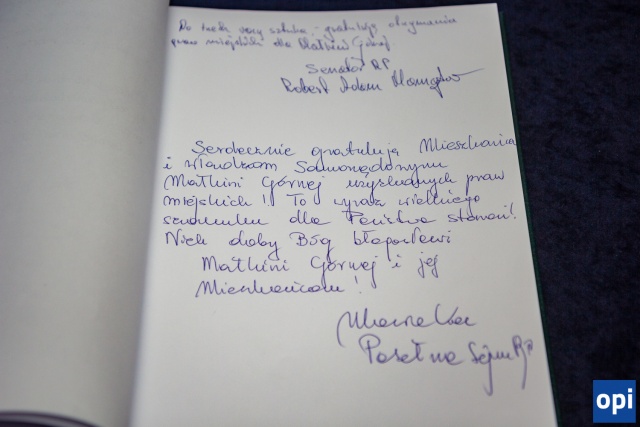 Do trzech razy sztuka - gratuluję otrzymania
praw miejskich dla Małkini Górnej.
Senator RP
Robert Adam
Serdecznie gratuluję Mieszkańcom
i władzom Samorządowym
Małkini Górnej uzyskanych praw
miejskich !! To wyraz wielkiego
szacunku dla Państwa starań!
Niech dobry Bóg błogosławi
Małkini Górnej i jej
Mieszkańcom !
Poseł na Sejm RP
opi